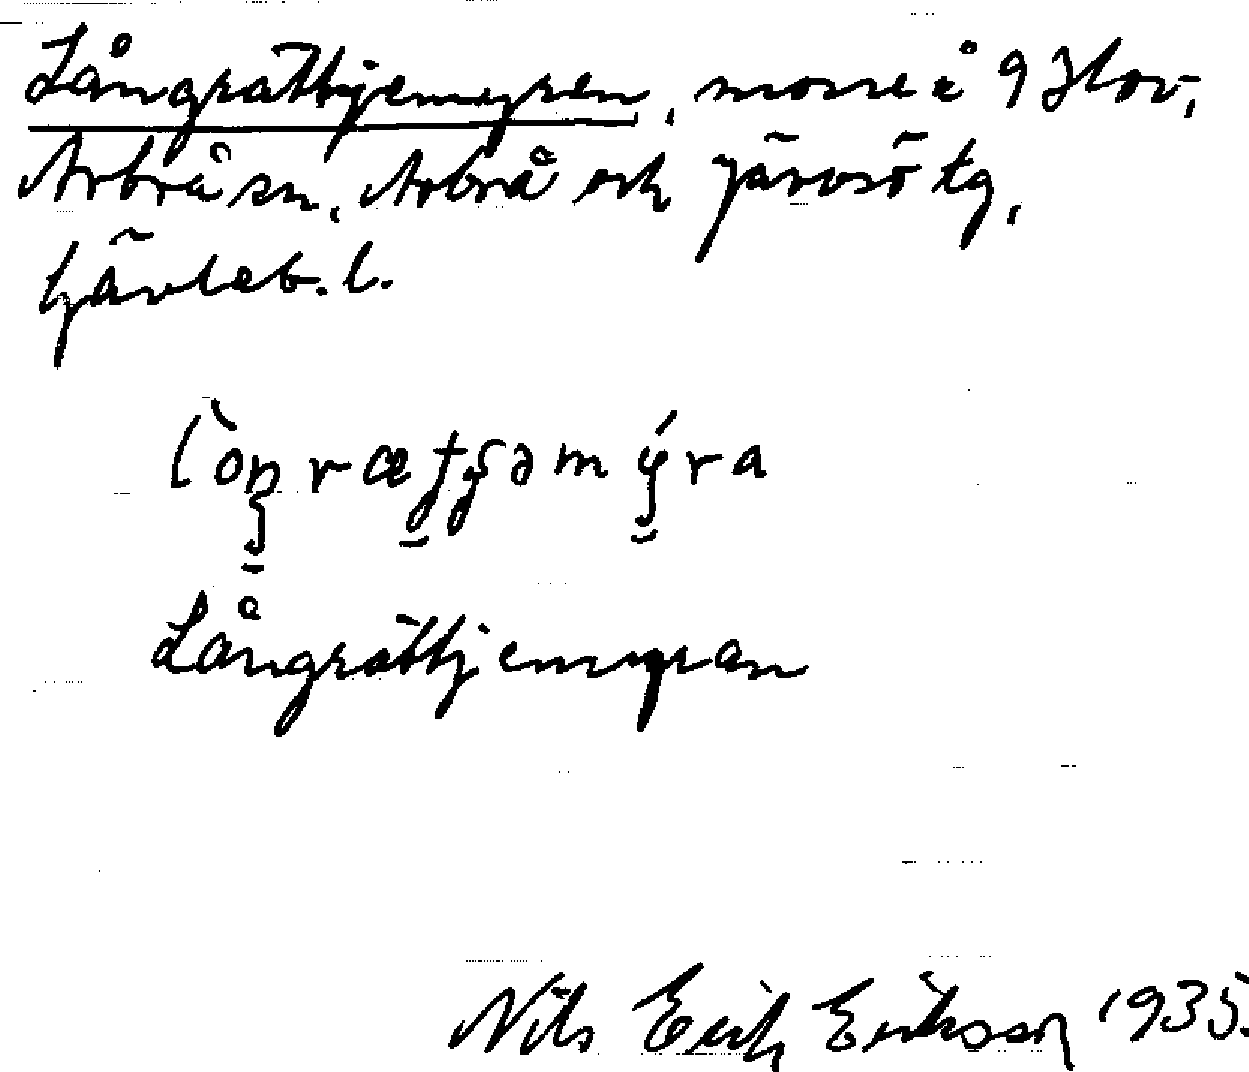 Långrättjemyren, mosse i 9 Flov,
Arbrå sn, Arbrå och Järvsö tg,
Gävleb. l.
Långrättjemyran
Nils Erik Eriksson 1935.